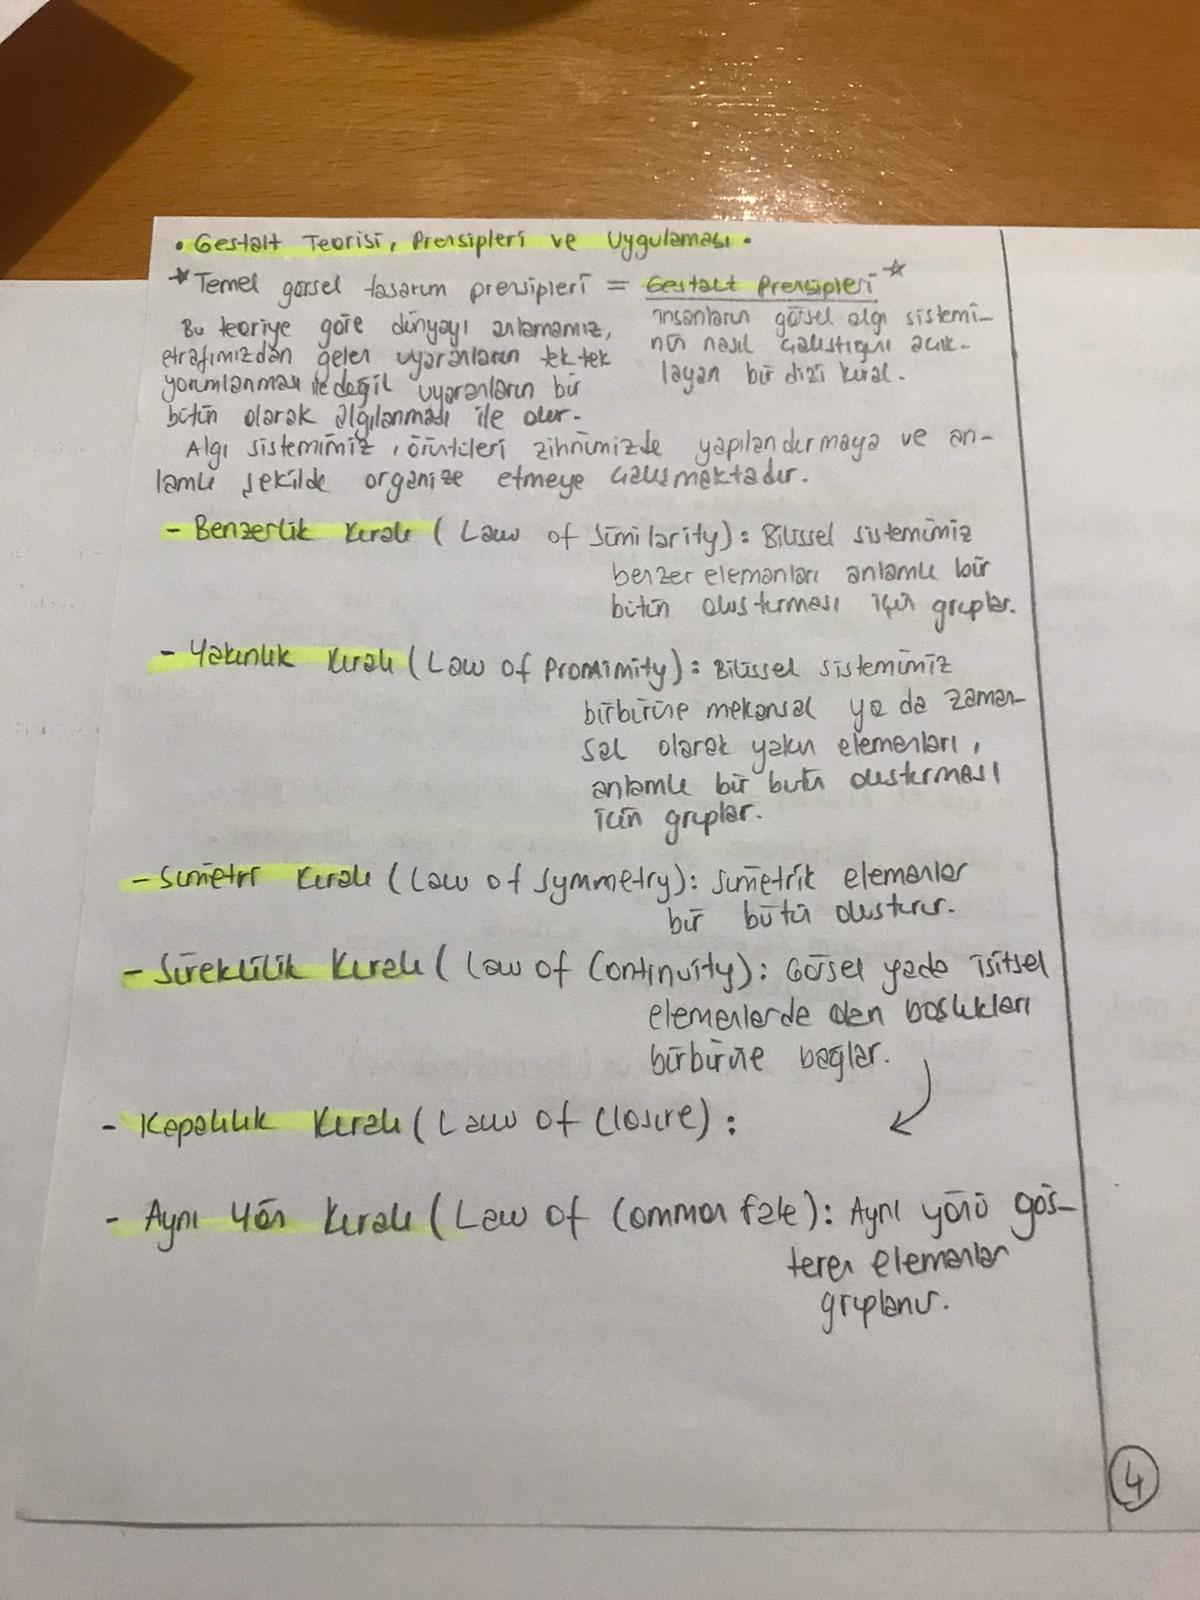 • Gestalt Teorisi, Prensipleri ve Uygulaması •
* Temel görsel tasarım prensipleri = Gestalt Prensipleri *
insanların görsel algı sistemi-
nin nasıl çalıştığını açık-
layan bir dizi kural.
Bu teoriye göre dünyayı anlamamız,
etrafımızdan gelen uyaranların tek tek
yorumlanması ile değil uyaranların bir
bütün olarak algılanması ile olur.
Algı sistemimiz, örüntüleri zihnimizde yapılandırmaya ve an-
lamlı şekilde organize etmeye çalışmaktadır.
- Benzerlik Kuralı (Law of Similarity): Bilişsel sistemimiz
benzer elemanları anlamlı bir
bütün oluşturması için gruplar.
- Yakınlık Kuralı (Law of Proximity): Bilişsel sistemimiz
birbirine mekansal ya da zaman-
sal olarak yakın elemanları,
anlamlı bir bütün oluşturması
için gruplar.
- Simetri Kuralı (Law of Symmetry): Simetrik elemanlar
bir bütün oluşturur.
- Süreklilik Kuralı (Law of Continuity): Görsel yada işitsel
elemanlarda olan boşlukları
birbirine bağlar.
- Kapalılık Kuralı (Law of Closure):
- Aynı Yön Kuralı (Law of Common fate): Aynı yönü gös-
teren elemanlar
gruplanır.
4